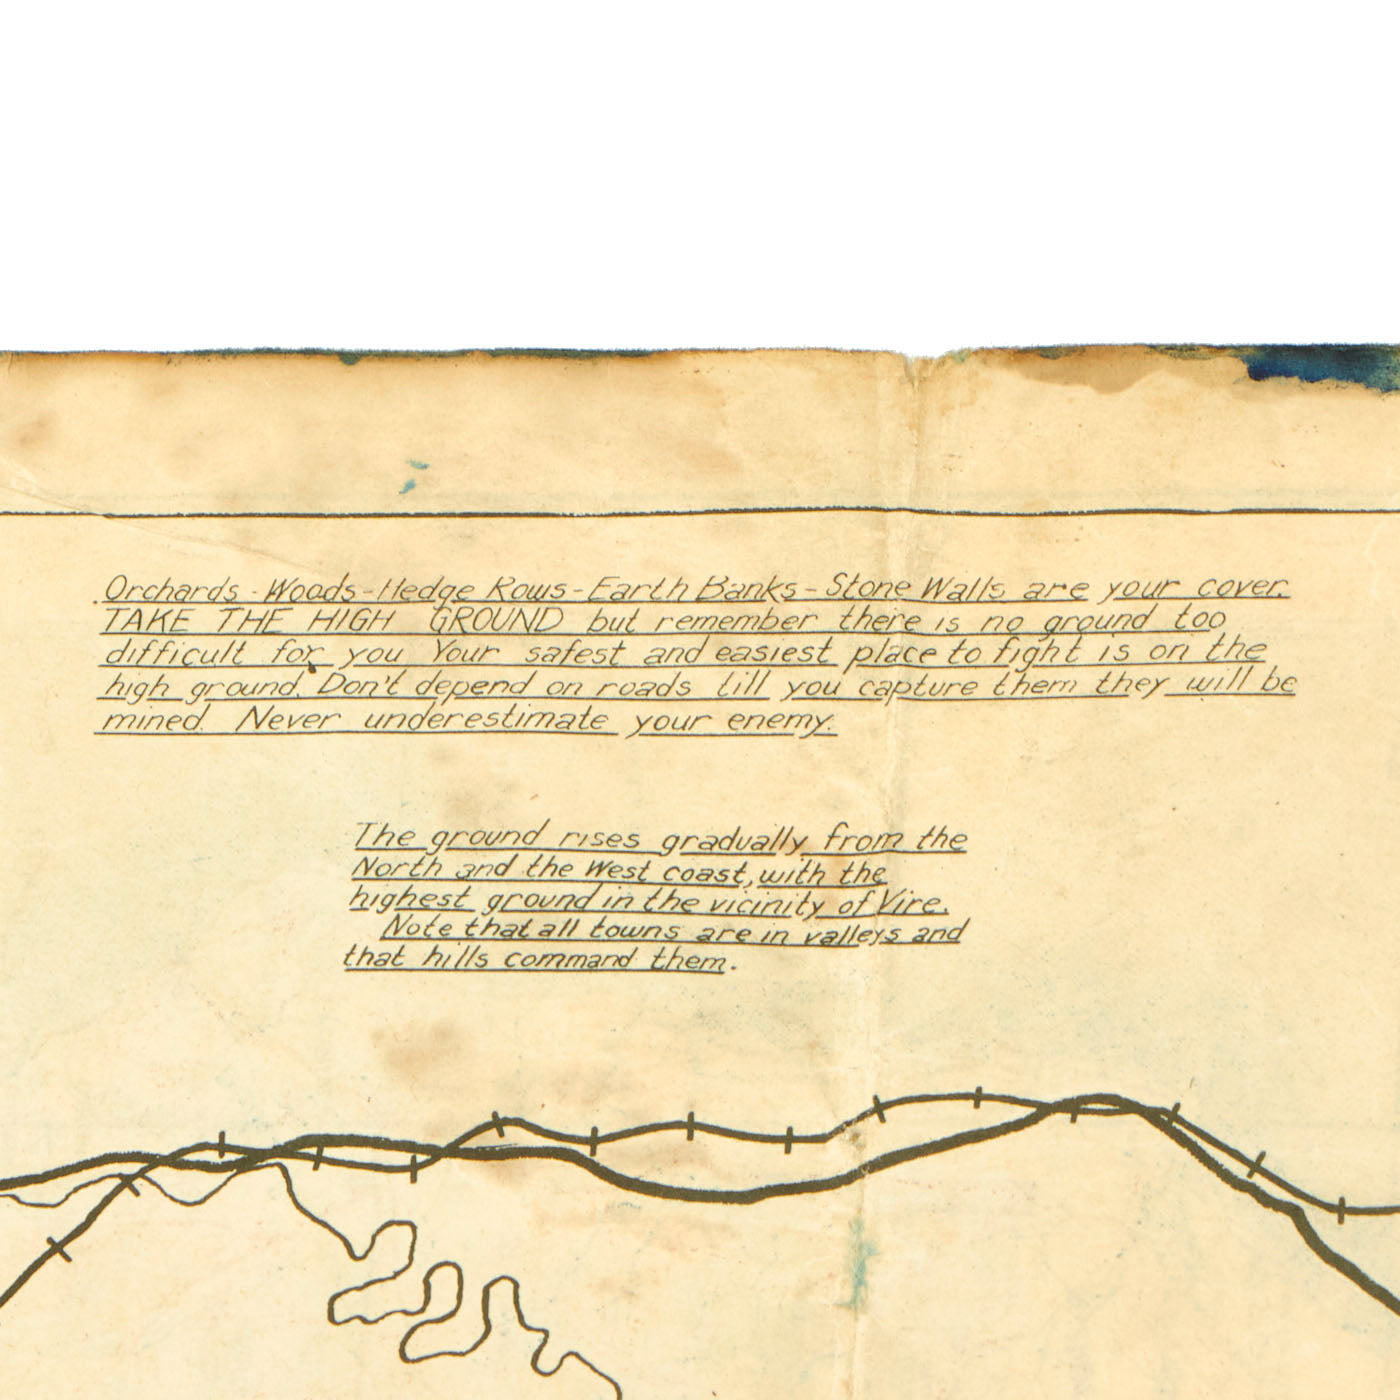 Orchards - Woods - Hedge Rows - Earth Banks - Stone Walls are your cover.
TAKE THE HIGH GROUND but remember there is no ground too
difficult for you Your safest and easiest place to fight is on the
high ground. Don't depend on roads till you capture them they will be
mined. Never underestimate your enemy.
The ground rises gradually from the
North and the West coast, with the
highest ground in the vicinity of Vire.
Note that all towns are in valleys and
that hills command them.